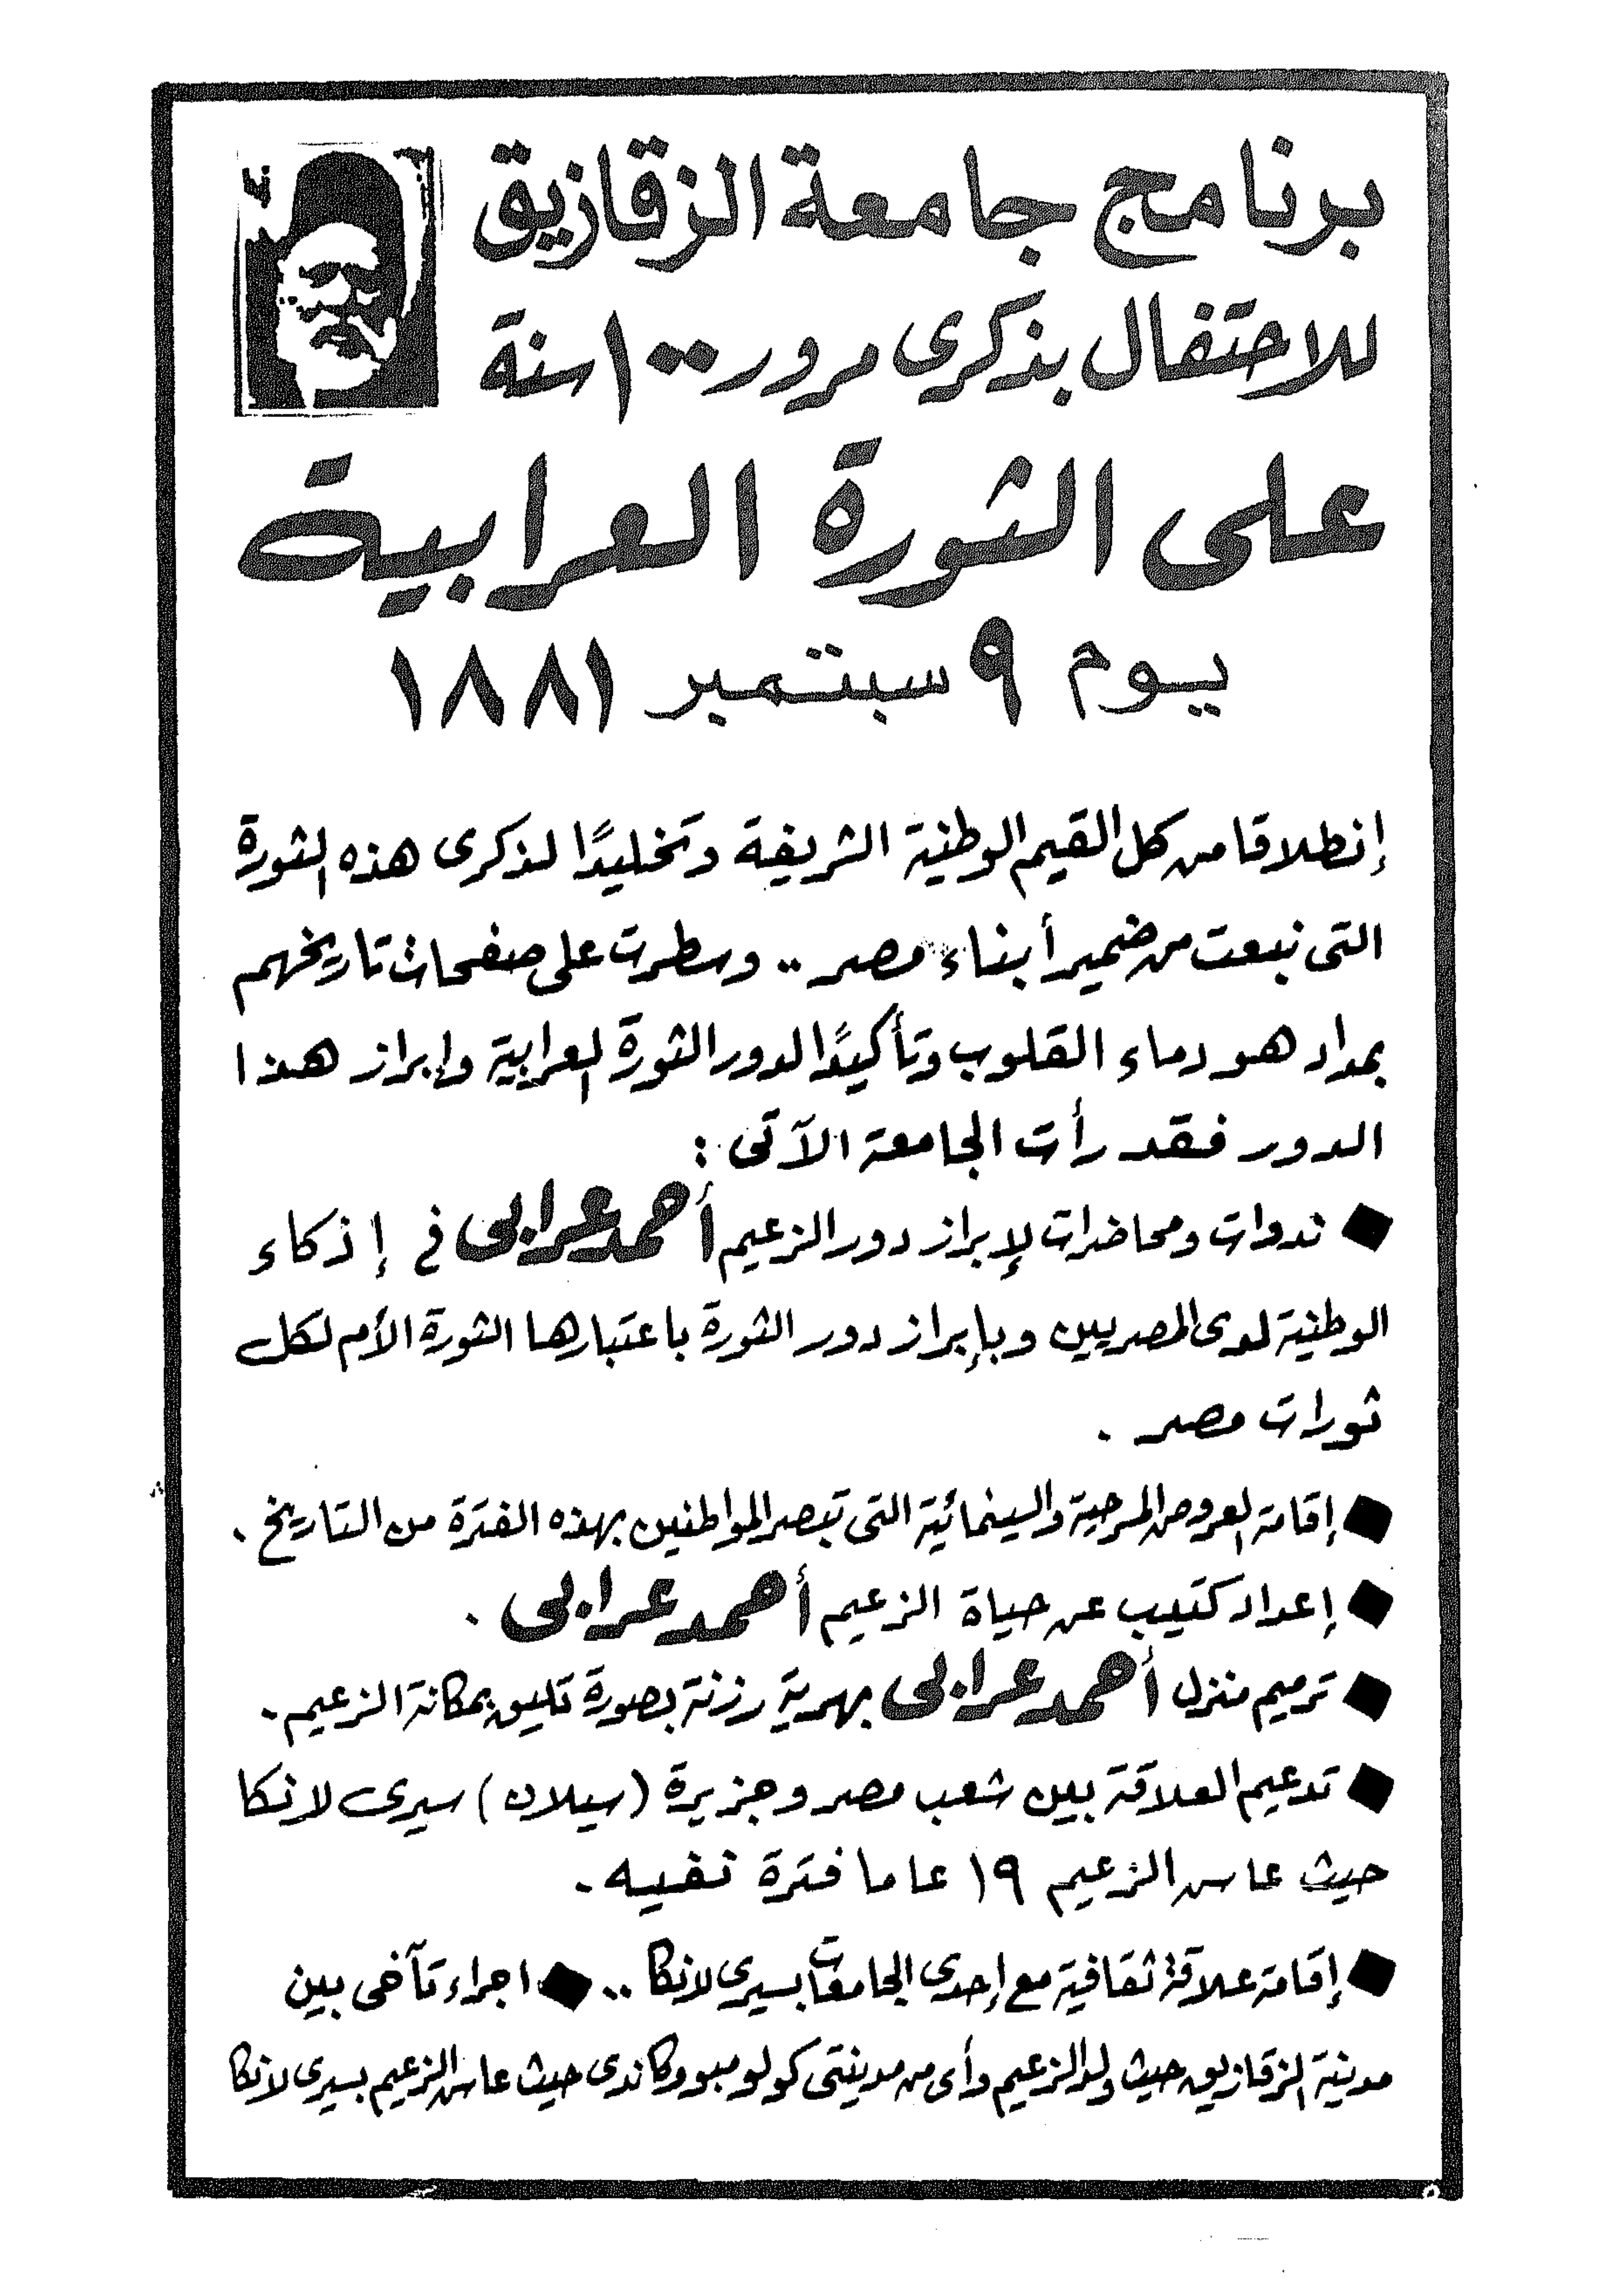 برنامج جامعة الزقازيق
للاحتفال بذكرى مرور ١٠٠ سنة
على الثورة العرابية
يوم ٩ سبتمبر ١٨٨١
إنطلاقا من كل القيم الوطنية الشريفة وتخليدًا لذكرى هذه الثورة
التى نبعت من ضمير أبناء مصر .. وسطرت على صفحات تاريخهم
بمداد هو دماء القلوب وتأكيدًا لدور الثورة العرابية وإبراز هذا
الدور فقد رأت الجامعة الآتى :
◆ ندوات ومحاضرات لإبراز دور الزعيم أحمد عرابى في إذكاء
الوطنية لدى المصريين وبإبراز دور الثورة باعتبارها الثورة الأم لكل
ثورات مصر .
◆ إقامة العروض المسرحية والسينمائية التى تبصر المواطنين بهذه الفترة من التاريخ .
◆ إعداد كتيب عن حياة الزعيم أحمد عرابى .
◆ ترميم منزل أحمد عرابى بهرية رزنة بصورة تليق بمكانة الزعيم .
◆ تدعيم العلاقة بين شعب مصر وجزيرة (سيلان) سيرى لانكا
حيث عاش الزعيم ١٩ عاما فترة نفيه .
◆ إقامة علاقة ثقافية مع إحدى الجامعات بسيرى لانكا .. ◆ اجراء تآخى بين
مدينة الزقازيق حيث ولد الزعيم وأى من مدينتى كولومبو وكاندى حيث عاش الزعيم بسيرى لانكا